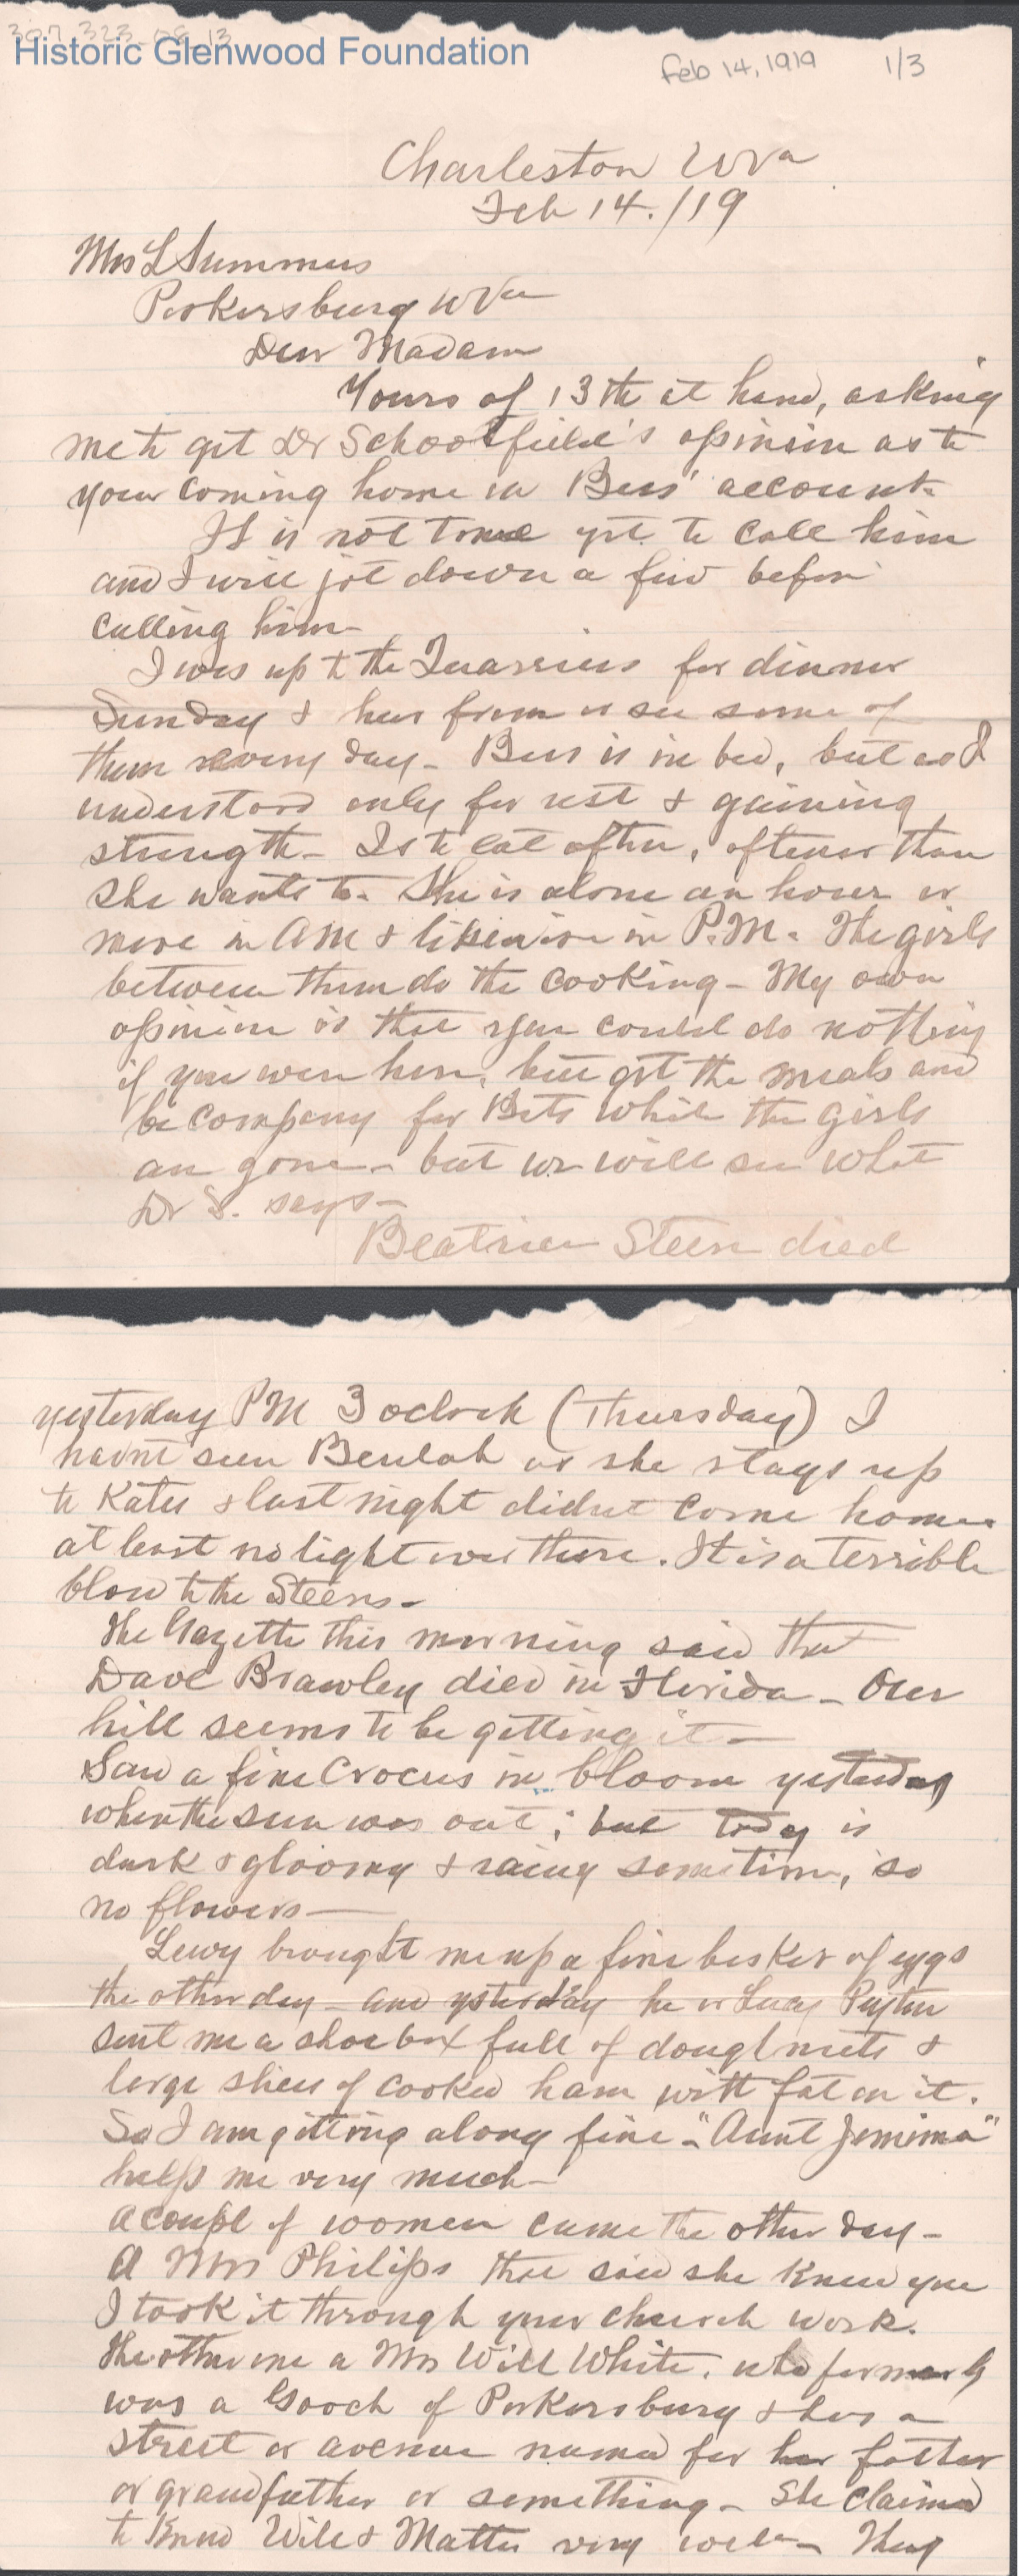 307 323-08 13
Historic Glenwood Foundation
Feb 14, 1919 1/3
Charleston WVa
Feb 14./19
Mrs L Summers
Parkersburg WVa
Dear Madam
Yours of 13th at hand, asking
me to get Dr Schoolfield's opinion as to
your coming home on Bess' account.
It is not time yet to call him
and I will jot down a few before
calling him—
I was up to the Quarriers for dinner
Sunday & hear from or see some of
them every day— Bess is in bed, but as I
understand only for rest & gaining
strength— Is to eat often, oftener than
she wants to. She is alone an hour or
more in AM & likewise in P.M. The girls
between them do the cooking— My own
opinion is that you could do nothing
if you were here, but get the meals and
be company for Bets while the girls
are gone— but we will see what
Dr S. says—
Beatrice Steen died
yesterday PM 3 oclock (Thursday) I
havnt seen Beulah as she stays up
to Kates & last night didnt come home
at least no light over there. It is a terrible
blow to the Steens—
The Gazette this morning said that
Dave Brawley died in Florida— Our
hill seems to be getting it—
Saw a fine Crocus in bloom yesterday
when the sun was out; but today is
dark & gloomy & rainy sometime, so
no flowers—
Lewy brought me up a fine basket of eggs
the other day— and yesterday he or Lucy
sent me a shoe box full of doughnuts &
large slice of cooked ham with fat on it.
So I am getting along fine— "Aunt Jemima"
helps me very much—
A coupl of women came the other day—
A Mrs Philips that said she knew you
I took it through your church work.
The other one a Mrs Will White. who formerly
was a Gooch of Parkersburg & has a
street or avenue named for her father
or grandfather or something— She claimed
to know Will & Matter very well— They